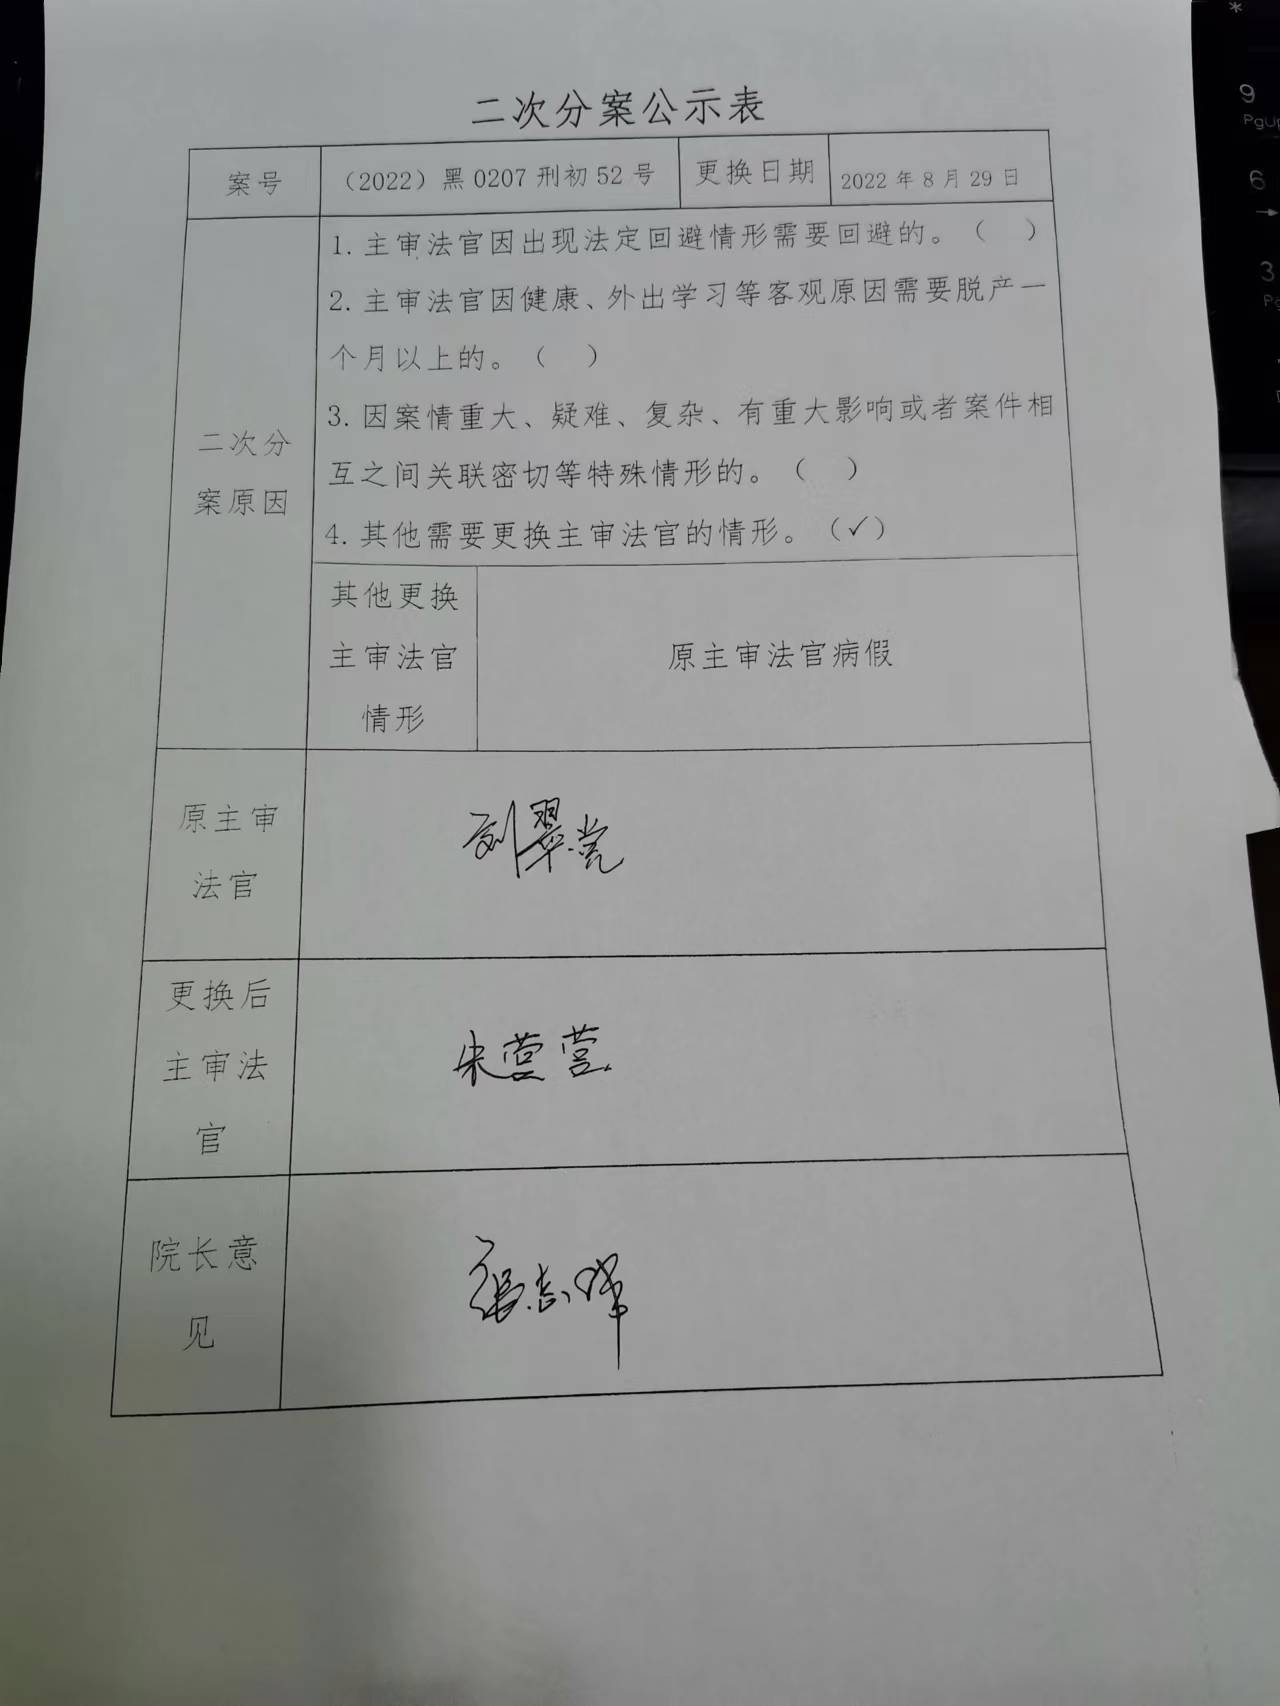 二次分案公示表
案号
（2022）黑 0207 刑初 52 号
更换日期
2022 年 8 月 29 日
二次分
案原因
1. 主审法官因出现法定回避情形需要回避的。（ ）
2. 主审法官因健康、外出学习等客观原因需要脱产一
个月以上的。（ ）
3. 因案情重大、疑难、复杂、有重大影响或者案件相
互之间关联密切等特殊情形的。（ ）
4. 其他需要更换主审法官的情形。（✓）
其他更换
主审法官
情形
原主审法官病假
原主审
法官
刘翠莹
更换后
主审法
官
朱莹莹
院长意
见
张志伟
*
9
PgUp
6
→
3